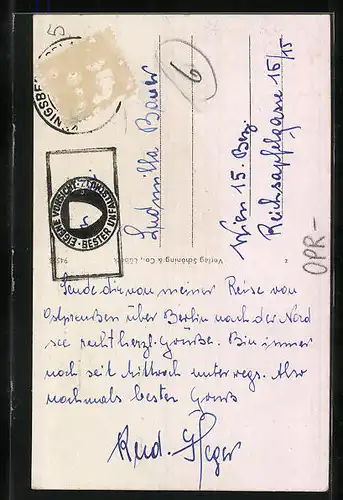 5
KÖNIGSBE
EIGENE VORSICHT · BESTER UNFALLSCHUTZ
6
Ludmilla Bauer
Wien 15. Bez.
Reichsapfelgasse 15/15
Verlag Schöning & Co., Lübeck
OPR-
Sende dir von meiner Reise von
Ostpreußen über Berlin nach der Nord
see recht herzl. Grüße. Bin immer
noch seit Mittwoch unterwegs. Also
nochmals besten Gruß
Rud. Heger